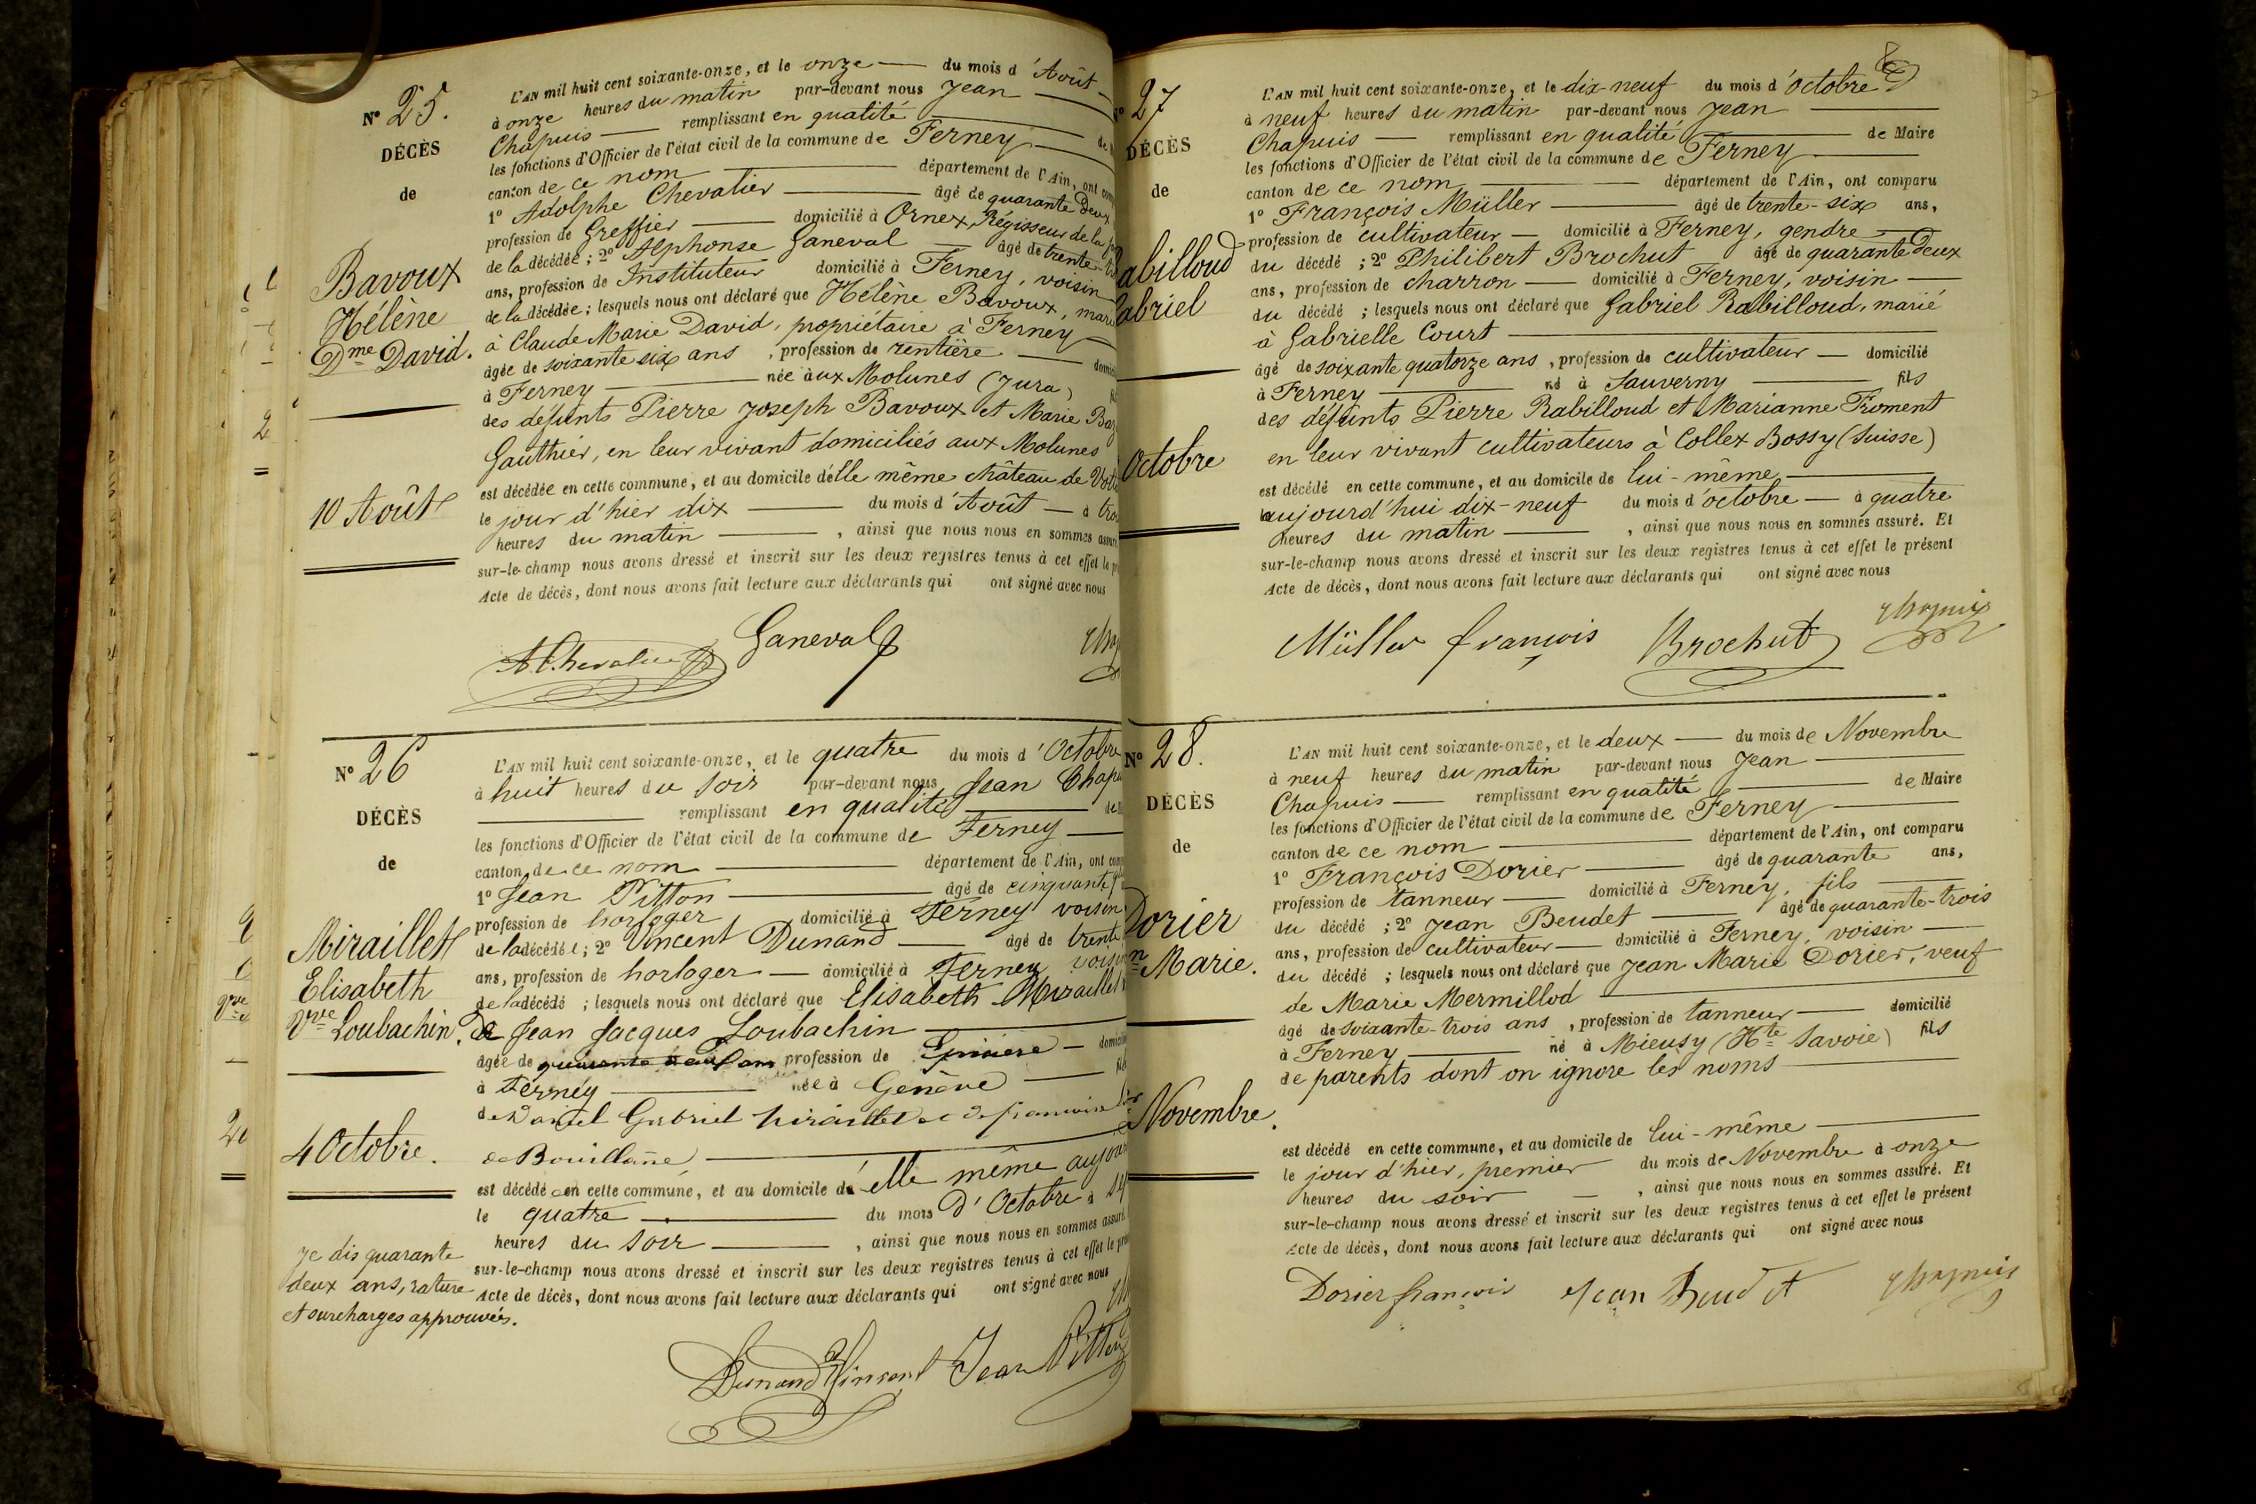 Nº 25.
DÉCÈS
de
Bavoux
Hélène
Dme David.
10 Août
L'AN mil huit cent soixante-onze, et le onze du mois d'Août
à onze heures du matin par-devant nous Jean
Chapuis remplissant en qualité
les fonctions d'Officier de l'état civil de la commune de Ferney
canton de ce nom département de l'Ain, ont
1º Adolphe Chevalier âgé de quarante deux
profession de Greffier domicilié à Ornex, Régisseur de la
de la décédée ; 2º Alphonse Ganeval âgé de trente
ans, profession de Instituteur domicilié à Ferney, voisin
de la décédée ; lesquels nous ont déclaré que Hélène Bavoux,
à Claude Marie David, propriétaire à Ferney
âgée de soixante six ans, profession de rentière
à Ferney née aux Molunes (Jura)
des défunts Pierre Joseph Bavoux et Marie
Gauthier, en leur vivant domiciliés aux Molunes
est décédée en cette commune, et au domicile d'elle même château de
le jour d'hier dix du mois d'Août à
heures du matin, ainsi que nous nous en sommes
sur-le-champ nous avons dressé et inscrit sur les deux registres tenus à cet effet le
Acte de décès, dont nous avons fait lecture aux déclarants qui ont signé avec nous
A. Chevalier Ganeval
Nº 26
DÉCÈS
de
Miraillet
Elisabeth
Vve Loubachin.
4 Octobre.
Je dis quarante
deux ans, rature
et surcharges approuvées.
L'AN mil huit cent soixante-onze, et le quatre du mois d'Octobre
à huit heures du soir par-devant nous Jean
remplissant en qualité
les fonctions d'Officier de l'état civil de la commune de Ferney
canton de ce nom département de l'Ain, ont
1º Jean Pitton âgé de cinquante
profession de horloger domicilié à Ferney voisin
de la décédée ; 2º Vincent Dunand âgé de trente
ans, profession de horloger domicilié à Ferney voisin
de la décédé ; lesquels nous ont déclaré que Elisabeth Miraillet
de Jean Jacques Loubachin
âgée de profession de
à Ferney née à Genève
de Daniel Gabriel Miraillet et de françoise
de Bouillane,
est décédée en cette commune, et au domicile d'elle même
le quatre du mois d'Octobre à
heures du soir, ainsi que nous nous en sommes
sur-le-champ nous avons dressé et inscrit sur les deux registres tenus à cet effet le
Acte de décès, dont nous avons fait lecture aux déclarants qui ont signé avec nous
Dunand Vincent Jean Pitton
27
DÉCÈS
de
abilloud
abriel
Octobre
L'AN mil huit cent soixante-onze, et le dix-neuf du mois d'Octobre
à neuf heures du matin par-devant nous Jean
Chapuis remplissant en qualité de Maire
les fonctions d'Officier de l'état civil de la commune de Ferney
canton de ce nom département de l'Ain, ont comparu
1º François Müller âgé de trente-six ans,
profession de cultivateur domicilié à Ferney, gendre
du décédé ; 2º Philibert Brochut âgé de quarante deux
ans, profession de charron domicilié à Ferney, voisin
du décédé ; lesquels nous ont déclaré que Gabriel Rabilloud, marié
à Gabrielle Court
âgé de soixante quatorze ans, profession de cultivateur domicilié
à Ferney né à Sauverny fils
des défunts Pierre Rabilloud et Marianne Froment
en leur vivant cultivateurs à Collex Bossy (Suisse)
est décédé en cette commune, et au domicile de lui-même
aujourd'hui dix-neuf du mois d'octobre à quatre
heures du matin, ainsi que nous nous en sommes assuré. Et
sur-le-champ nous avons dressé et inscrit sur les deux registres tenus à cet effet le présent
Acte de décès, dont nous avons fait lecture aux déclarants qui ont signé avec nous
Müller françois Brochut Chapuis
Nº 28.
DÉCÈS
de
Dorier
Marie.
Novembre.
L'AN mil huit cent soixante-onze, et le deux du mois de Novembre
à neuf heures du matin par-devant nous Jean
Chapuis remplissant en qualité de Maire
les fonctions d'Officier de l'état civil de la commune de Ferney
canton de ce nom département de l'Ain, ont comparu
1º François Dorier âgé de quarante ans,
profession de tanneur domicilié à Ferney, fils
du décédé ; 2º Jean Beudet âgé de quarante-trois
ans, profession de cultivateur domicilié à Ferney, voisin
du décédé ; lesquels nous ont déclaré que Jean Marie Dorier, veuf
de Marie Mermillod
âgé de soixante-trois ans, profession de tanneur domicilié
à Ferney né à Mieusy (Hte Savoie) fils
de parents dont on ignore les noms
est décédé en cette commune, et au domicile de lui-même
le jour d'hier, premier du mois de Novembre à onze
heures du soir, ainsi que nous nous en sommes assuré. Et
sur-le-champ nous avons dressé et inscrit sur les deux registres tenus à cet effet le présent
Acte de décès, dont nous avons fait lecture aux déclarants qui ont signé avec nous
Dorier françois Jean Beudet Chapuis